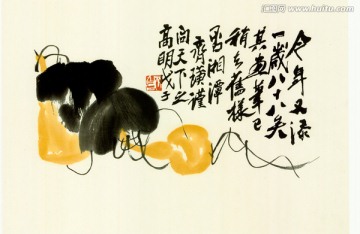 今年又添
一岁八十八矣
其画笔已
稍去旧样
湘潭
齐璜谨
问天下之
高明戊子
www.huitu.com